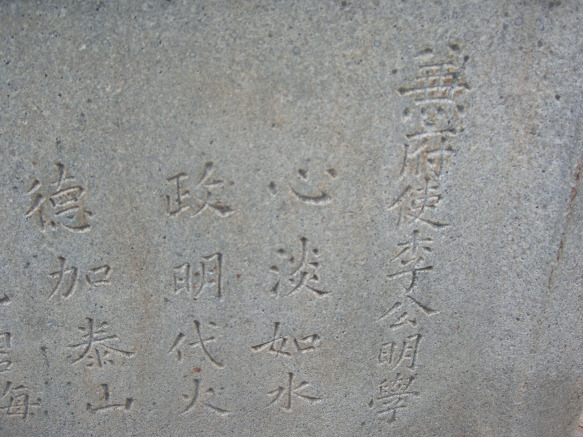 兼府使李公明學
心淡如水
政明代火
德加泰山
海